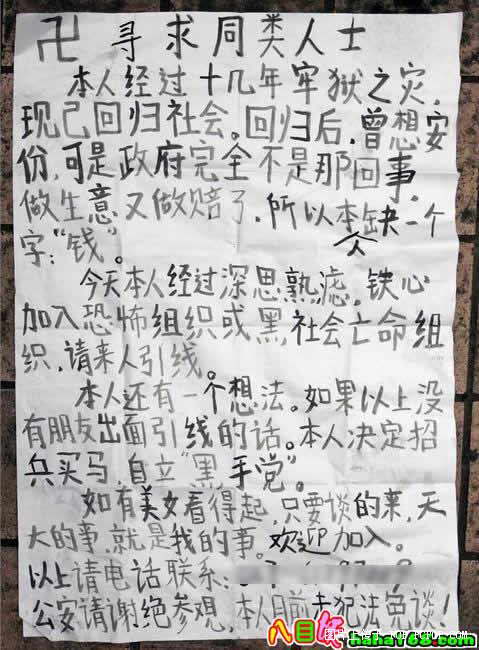 卍 寻求同类人士
本人经过十几年牢狱之灾，
现已回归社会。回归后，曾想安
份，可是政府完全不是那回事。
做生意又做赔了，所以本人缺一个
字：“钱”。
今天本人经过深思熟滤，铁心
加入恐怖组织或黑社会亡命组
织，请来人引线。
本人还有一个想法。如果以上没
有朋友出面引线的话。本人决定招
兵买马，自立“黑手党”。
如有美女看得起，只要谈的来，天
大的事，就是我的事。欢迎加入。
以上请电话联系：
公安请谢绝参观，本人目前未犯法免谈！
haha168.com